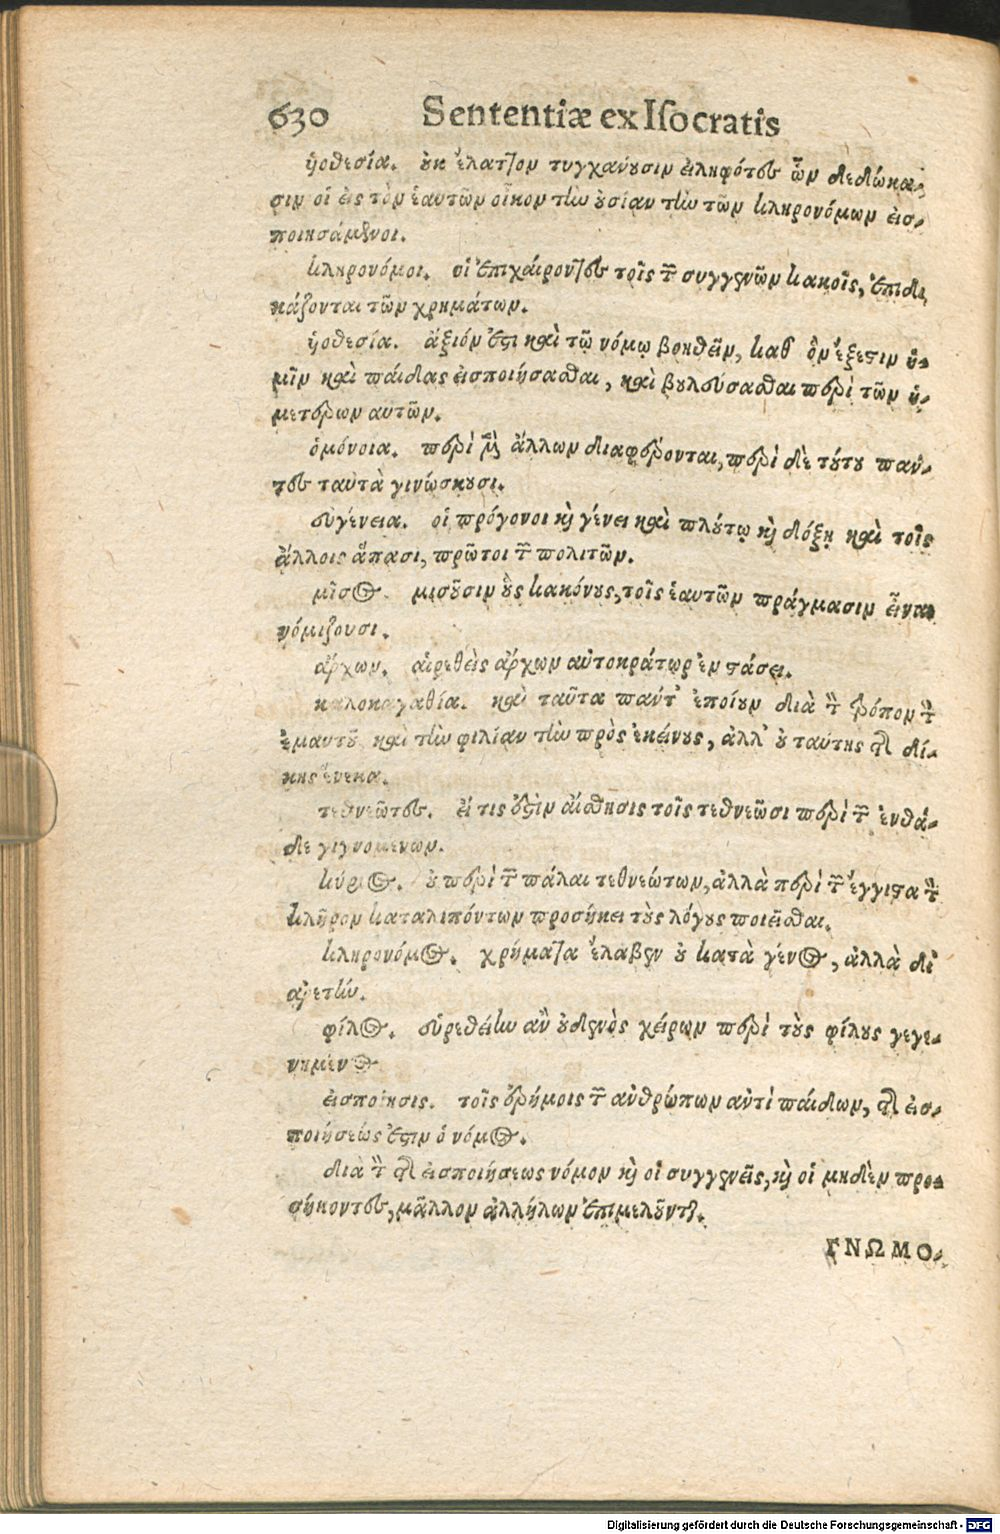 630 Sententiæ ex Isocratis
ὑοθεσία. οὐκ ἔλαττον τυγχάνουσιν εἰληφότες ὧν δεδώκα-
σιν οἱ εἰς τὸν ἑαυτῶν οἶκον τὴν οὐσίαν τὴν τῶν κληρονόμων εἰσ-
ποιησάμενοι.
κληρονόμοι. οἱ ἐπιχαίροντες τοῖς τῶν συγγενῶν κακοῖς, ἐπιδι-
κάζονται τῶν χρημάτων.
ὑοθεσία. ἄξιόν ἐστι καὶ τῷ νόμῳ βοηθεῖν, καθ ὃν ἔξεστιν ὑ-
μῖν καὶ παῖδας εἰσποιήσασθαι, καὶ βουλεύσασθαι περὶ τῶν ὑ-
μετέρων αυτῶν.
ὁμόνοια. περὶ μὲν ἄλλων διαφέρονται, περὶ δὲ τούτου παν-
τες ταὐτὰ γινώσκουσι.
συγένεια. οἱ πρόγονοι καὶ γένει καὶ πλούτῳ καὶ δόξῃ καὶ τοῖς
ἄλλοις ἅπασι, πρῶτοι τῶν πολιτῶν.
μῖσος. μισοῦσιν οὓς κακόνους, τοῖς ἑαυτῶν πράγμασιν εἶναι
νόμιζουσι.
ἄρχων. αἱρεθεὶς ἄρχων αὐτοκράτωρ ἐν στάσει.
καλοκαγαθία. καὶ ταῦτα παντ' ἐποίουν διὰ τὸν τρόπον τὸν
ἐμαυτοῦ καὶ τὴν φιλίαν τὴν πρὸς ἐκείνους, ἀλλ' οὐ ταύτης τῆς δί-
κης ἕνεκα.
τεθνεῶτες. εἴ τις ἐστὶν αἴσθησις τοῖς τεθνεῶσι περὶ τῶν ἐνθά-
δε γιγνομένων.
κύριος. οὐ περὶ τῶν πάλαι τεθνεώτων, ἀλλὰ περὶ τῶν ἔγγιστα τὸν
κλῆρον καταλιπόντων προσήκει τοὺς λόγους ποιεῖσθαι.
κληρονόμος. χρήματα ἔλαβεν οὐ κατὰ γένος, ἀλλὰ δι'
ἀρετήν.
φίλος. εὑρεθείην ἂν οὐδενὸς χείρων περὶ τοὺς φίλους γεγε-
νημένος
εἰσποίησις. τοῖς ἐρήμοις τῶν ἀνθρώπων ἀντὶ παίδων, τῆς εἰσ-
ποιήσεώς ἐστιν ὁ νόμος.
διὰ τὸν τῆς εἰσποιήσεως νόμον καὶ οἱ συγγενεῖς, καὶ οἱ μηδὲν προσ-
σήκοντες, μᾶλλον ἀλλήλων ἐπιμελοῦνται.
ΓΝΩΜΟ-
Digitalisierung gefördert durch die Deutsche Forschungsgemeinschaft - DFG